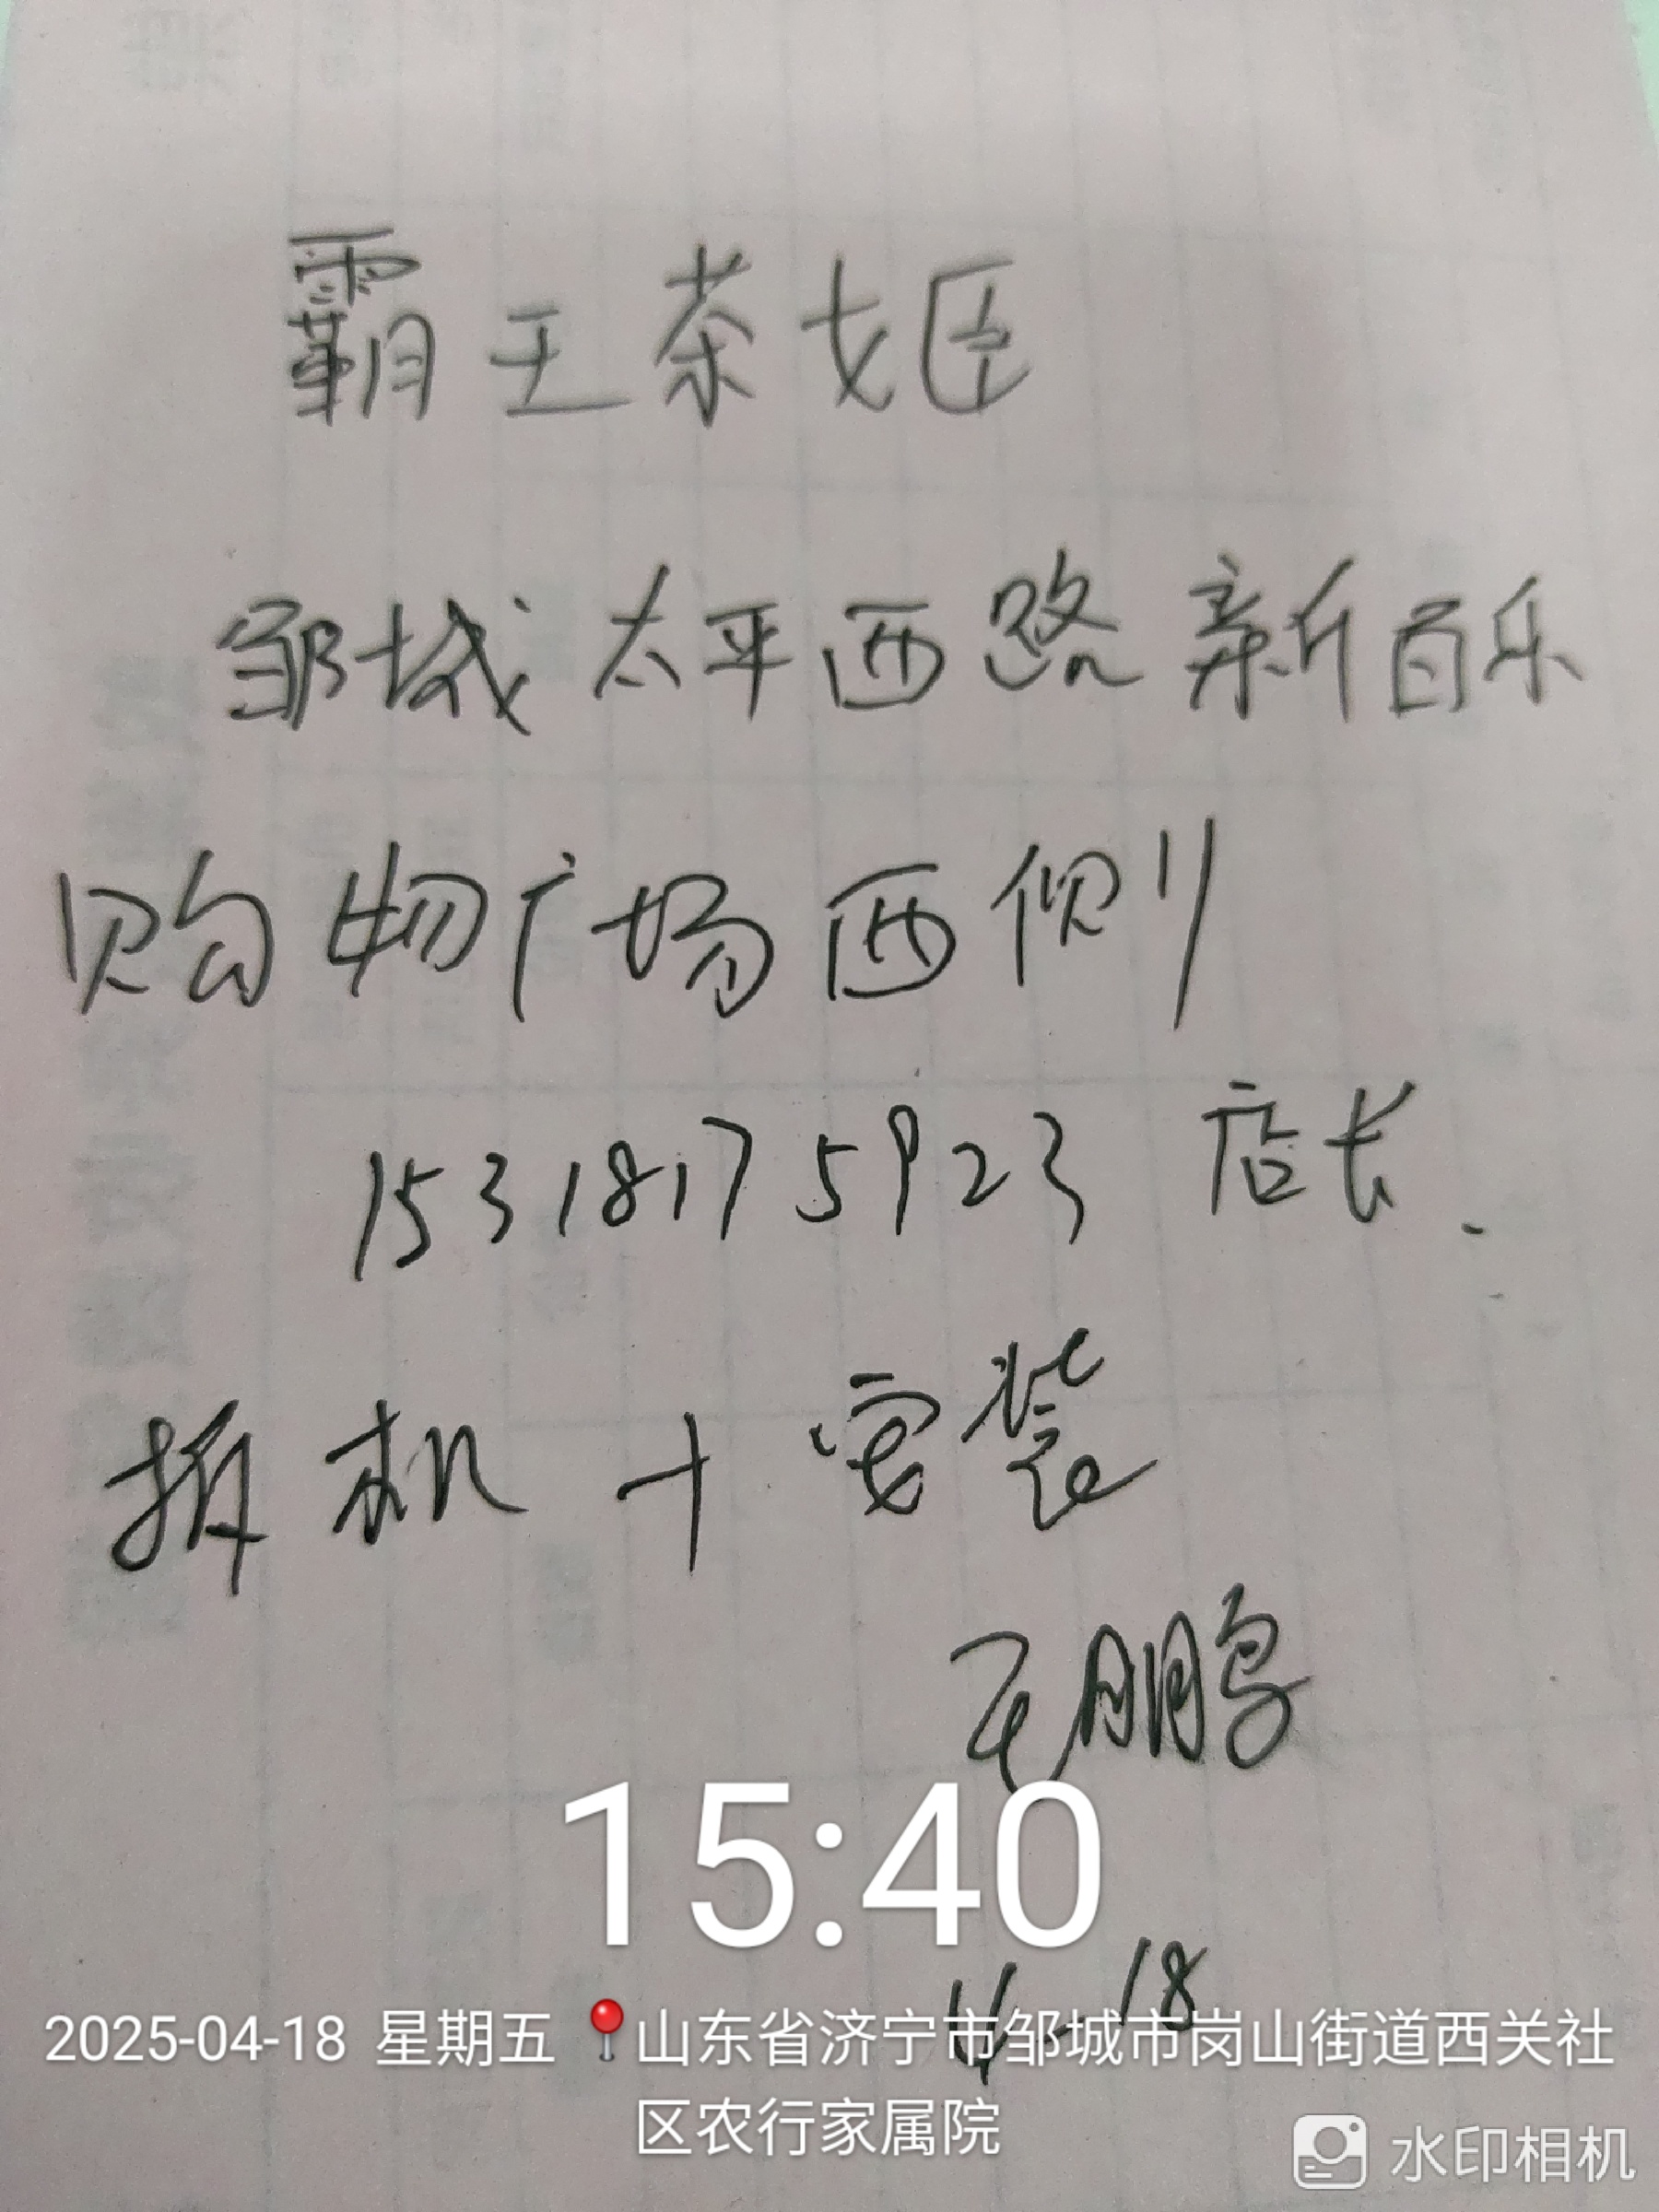 霸王茶姬
邹城太平西路新百乐
购物广场西侧
15318175923 店长.
拆机+安装
王鹏
15:40
4-18
2025-04-18 星期五 山东省济宁市邹城市岗山街道西关社
区农行家属院
水印相机